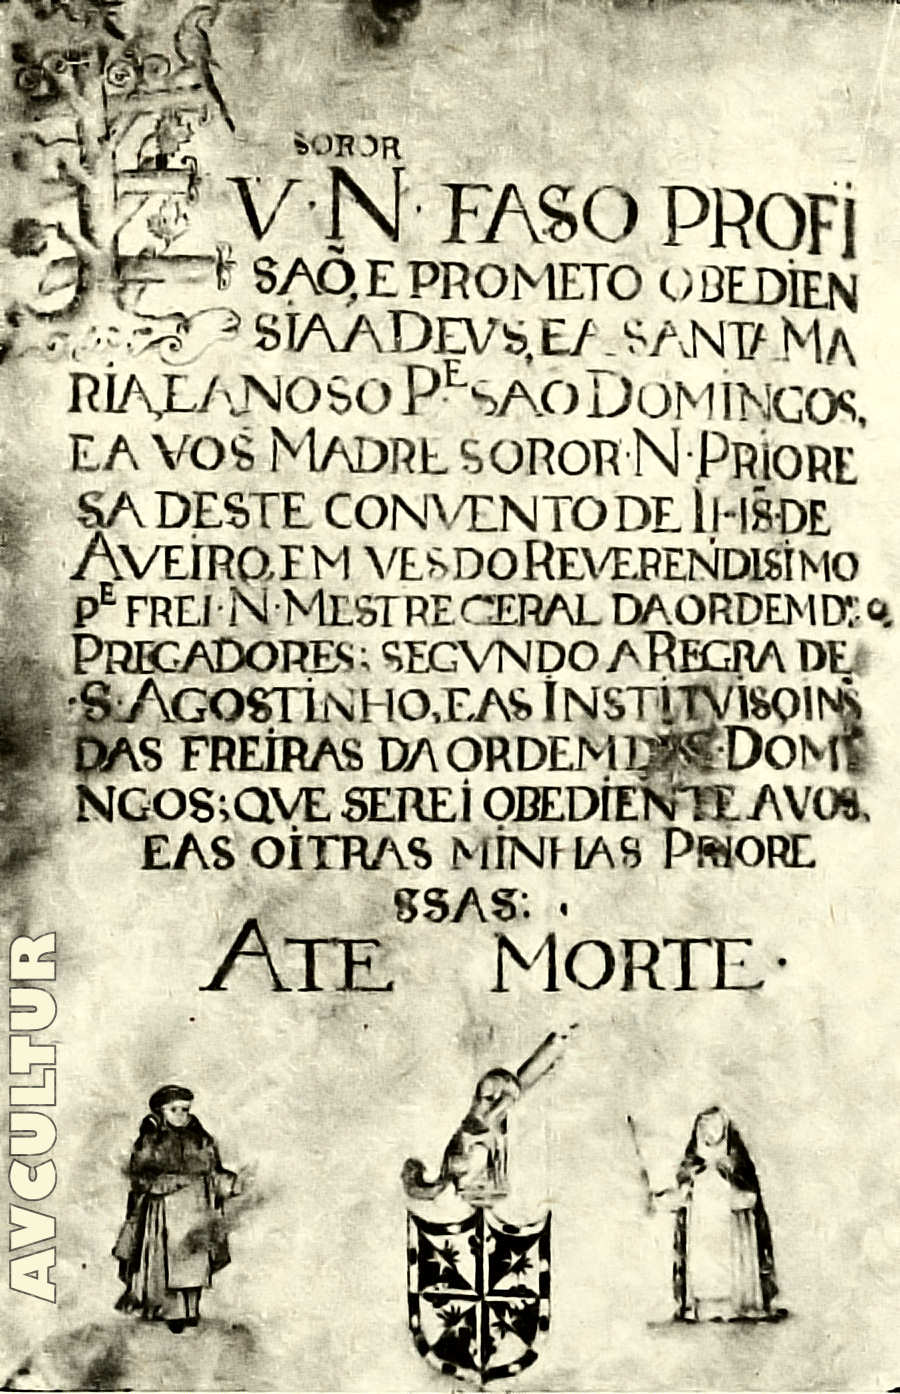 SOROR
EV·N· FASO PROFI
SAÕ, E PROMETO OBEDIEN
SIA A DEVS, E A SANTA MA
RIA, E A NOSO Pᴱ SAO DOMINGOS,
E A VOS MADRE SOROR·N·PRIORE
SA DESTE CONVENTO DE DE
AVEIRO, EM VES DO REVERENDISIMO
Pᴱ FREI·N·MESTRE GERAL DA ORDEM D
PREGADORES: SEGVNDO A REGRA DE
·S·AGOSTINHO, E AS INSTITVISOINS
DAS FREIRAS DA ORDEM DOMI
NGOS; QVE SEREI OBEDIENTE A VOS,
E AS OITRAS MINHAS PRIORE
SSAS:
ATE MORTE·
AVCULTUR